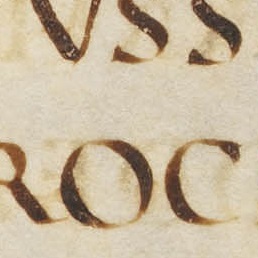 VSS
ROC